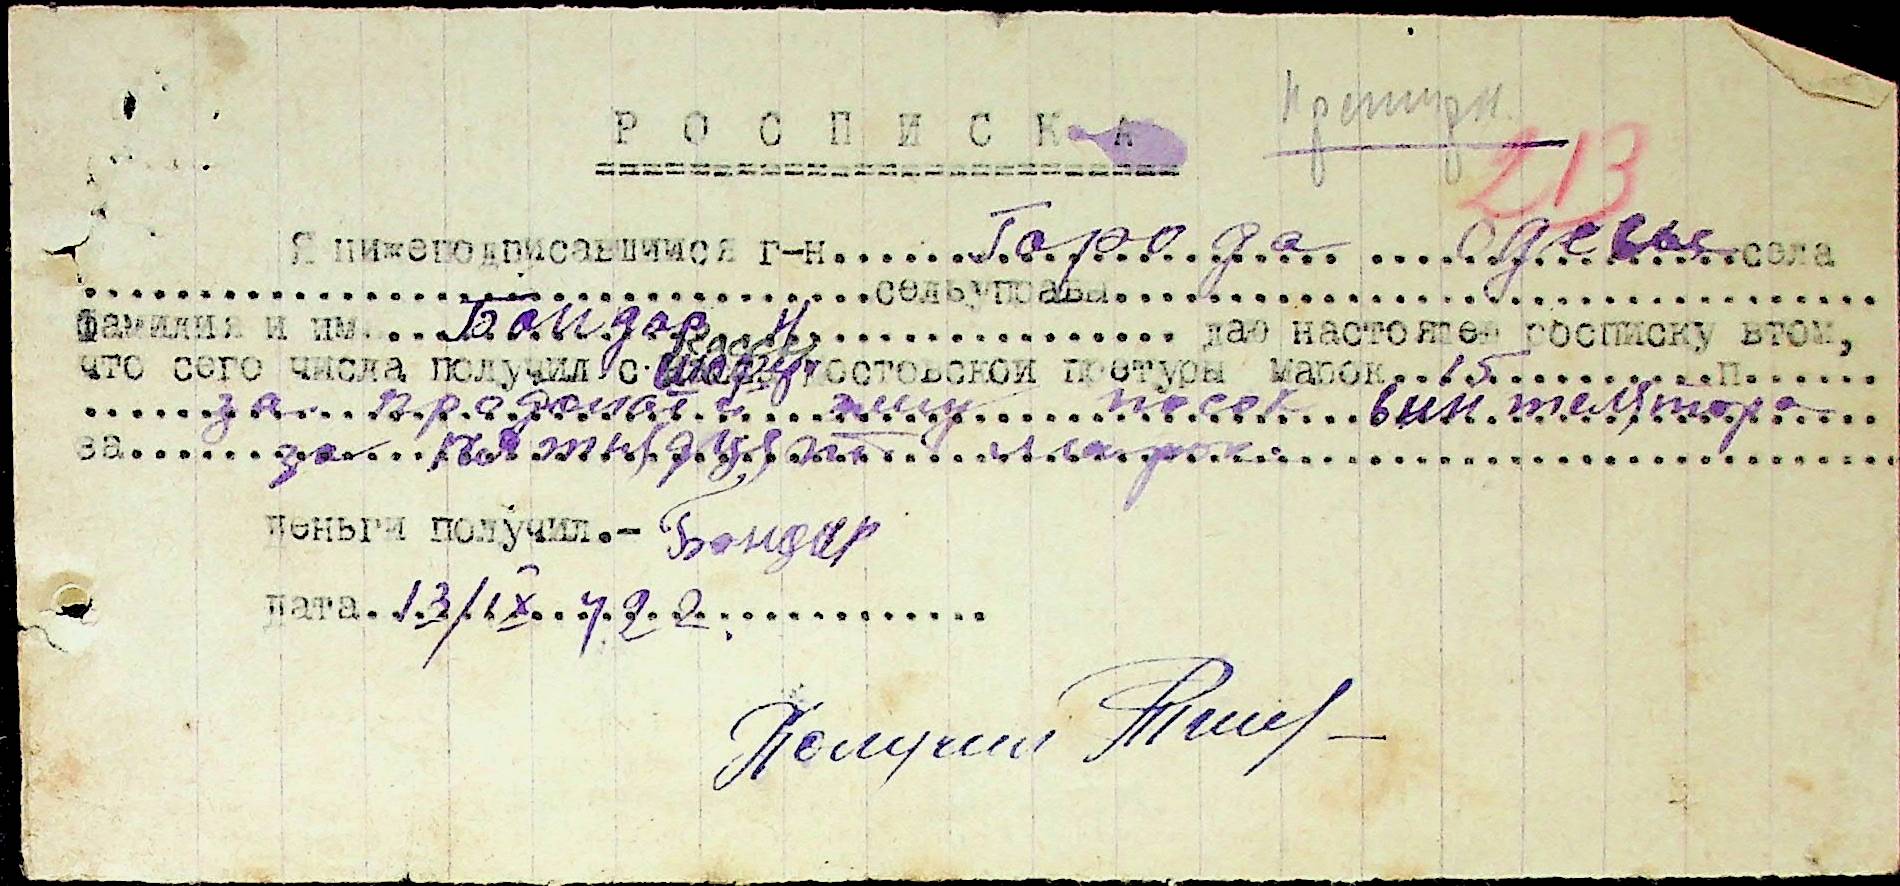 Р О С П И С К А
213
Я нижеподписавшийся г-н......Города ....Одессы села
................................сельуправы................................
Фамилия и им...Бондар И................ даю настоящею росписку втом,
что сего числа получил с. ростовской претуры марок...15...........п......
за продомаг ему посок вин
за......за пятндцять марок
Деньги получил.- Бондар
Дата.13/IX 42
Получил